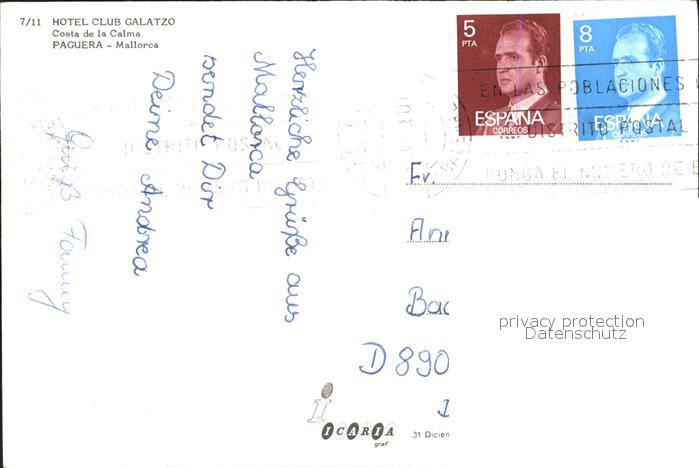 7/11 HOTEL CLUB GALATZO
Costa de la Calma
PAGUERA - Mallorca
5
PTA
ESPAÑA
CORREOS
F.N.M.T.
8
PTA
ESPAÑA
EN LAS POBLACIONES
DISTRITO POSTAL
PONGA EL NUMERO DE
DISTRITO POSTAL
Herzliche Grüße aus
Mallorca
sendet Dir
Deine Andrea
Gruß Fanny
Fr
An
Bac
D 890
1
privacy protection
Datenschutz
i
ICARIA
graf
31 Dicien